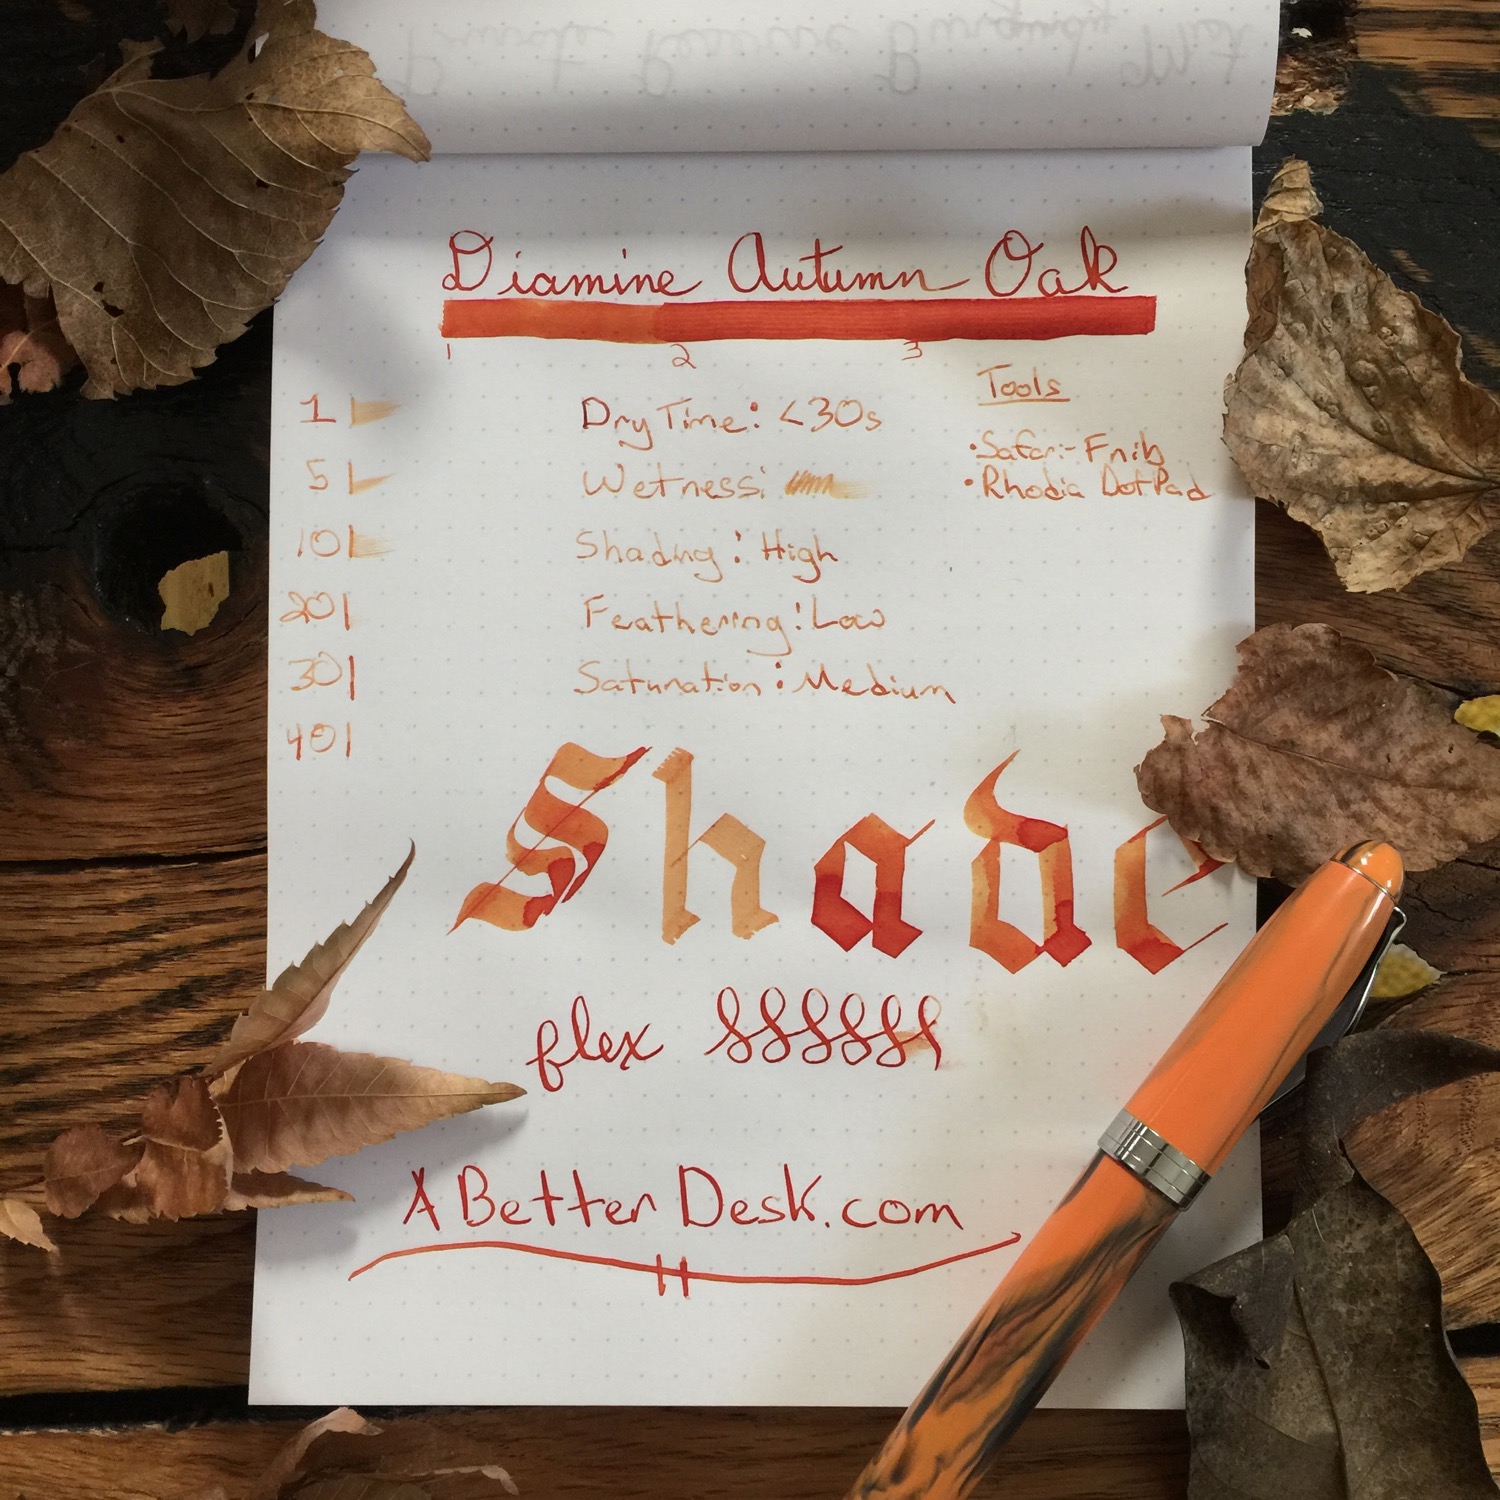 Diamine Autumn Oak
1 2 3
Tools
• Safari - F nib
• Rhodia DotPad
1
5
10
20
30
40
Dry Time: <30s
Wetness:
Shading: High
Feathering: Low
Saturation: Medium
Shade
flex
A Better Desk.com